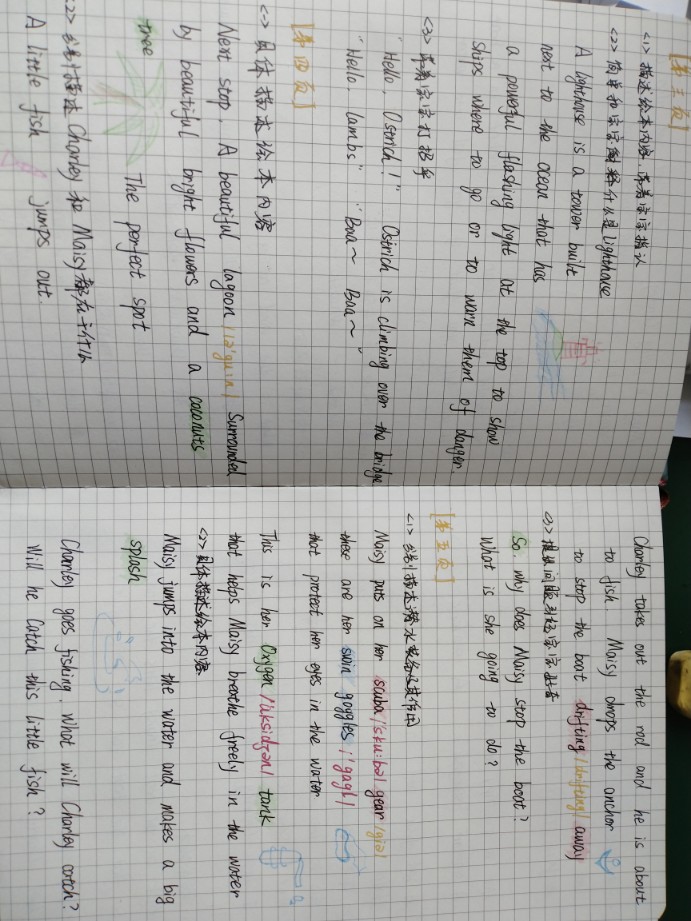 [第三页]
<1> 描述绘本内容,带着宝宝指认
<2> 简单和宝宝解释什么是lighthouse
A lighthouse is a tower built
next to the ocean that has
a powerful flashing light at the top to show
ships where to go or to warn them of danger.
<3> 带着宝宝打招呼
"Hello, Ostrich!" Ostrich is climbing over the bridge
"Hello, lambs" "Baa~ Baa~"
[第四页]
<1> 具体描述绘本内容
Next stop, A beautiful lagoon /lə'gu:n/ Surrounded
by beautiful bright flowers and a coconuts
tree The perfect spot
<2> 分别描述Charley和Maisy都在干什么
A little fish jumps out.
Charley takes out the rod and he is about
to fish Maisy drops the anchor
to stop the boat drifting /driftiŋ/ away
<3> 提出问题引起宝宝
So, why does Maisy stop the boat?
What is she going to do?
[第五页]
<1> 分别描述潜水装备及其作用
Maisy puts on her scuba /'sku:bə/ gear /giə/
these are her swim goggles /'gagl/
that protect her eyes in the water
This is her Oxygen /'aksidʒən/ tank
that helps Maisy breathe freely in the water
<2> 具体描述绘本内容
Maisy jumps into the water and makes a big
splash
Charley goes fishing. What will Charley catch?
Will he catch this little fish?